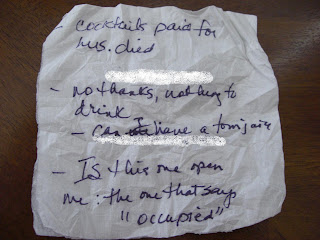 - cocktails paid for
hus. died
- no thanks, nothing to
drink
- can I have a tom juice
- Is this one open
me: the one that says
"occupied"